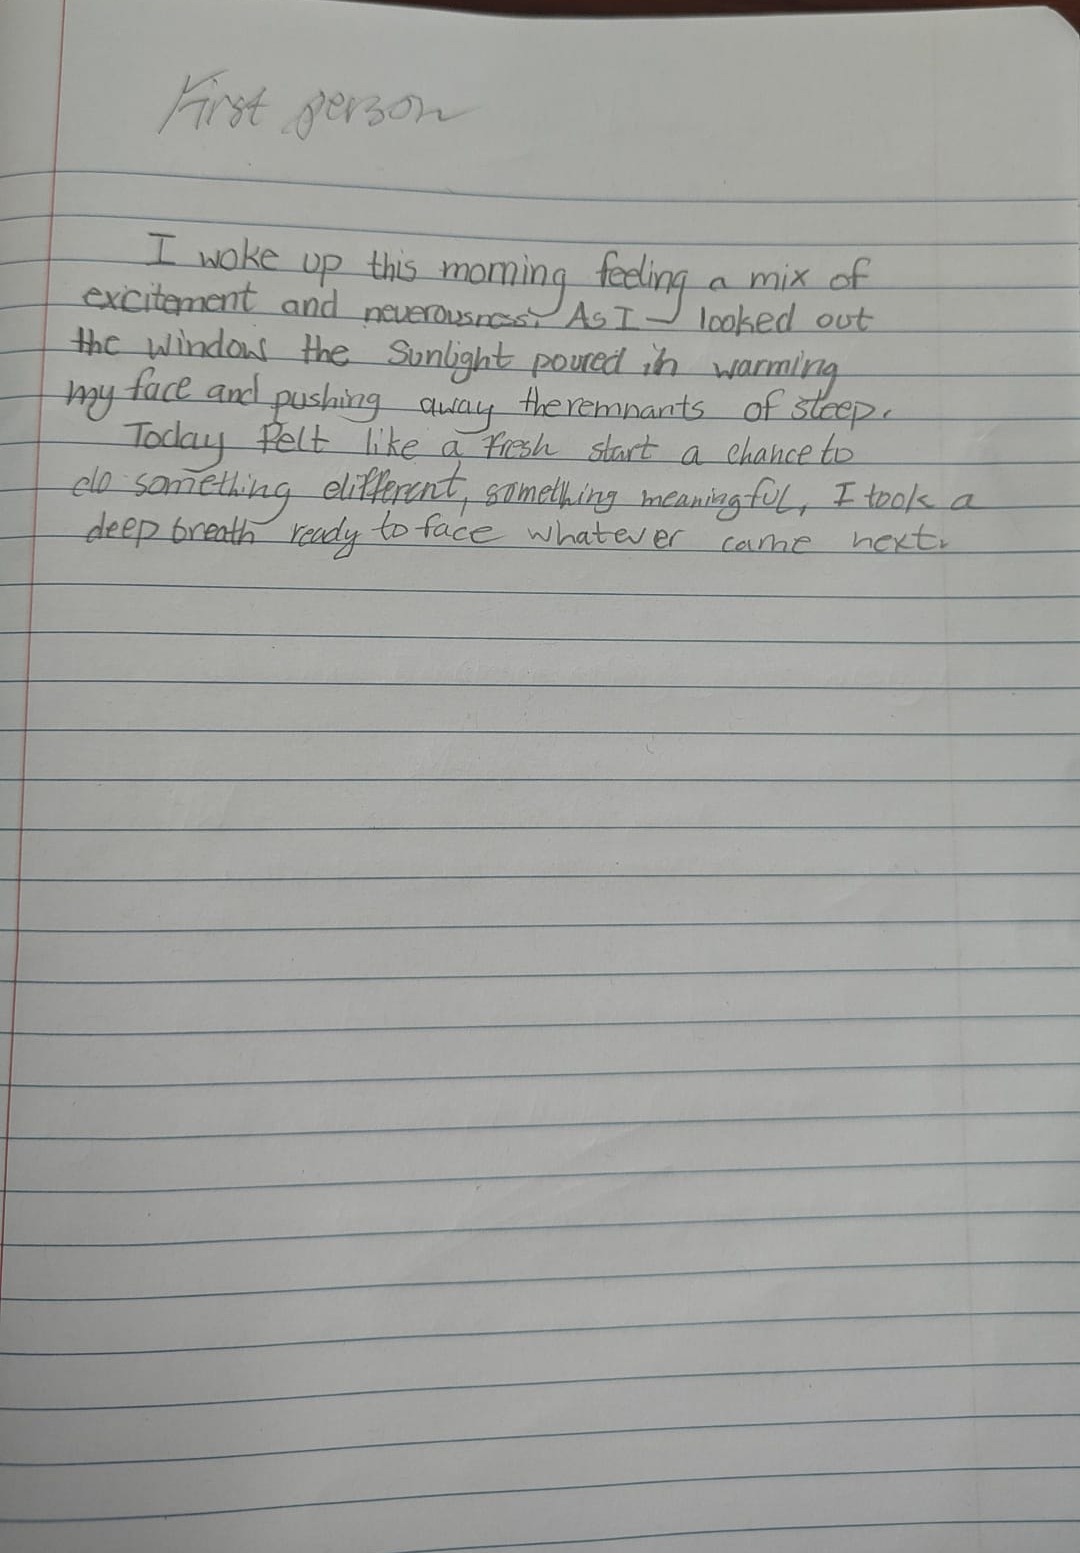 First person
I woke up this morning feeling a mix of
excitement and neverousness. As I looked out
the window the Sunlight poured in warming
my face and pushing away the remnants of sleep.
Today felt like a fresh start a chance to
do something different, something meaningful, I took a
deep breath ready to face whatever came next.